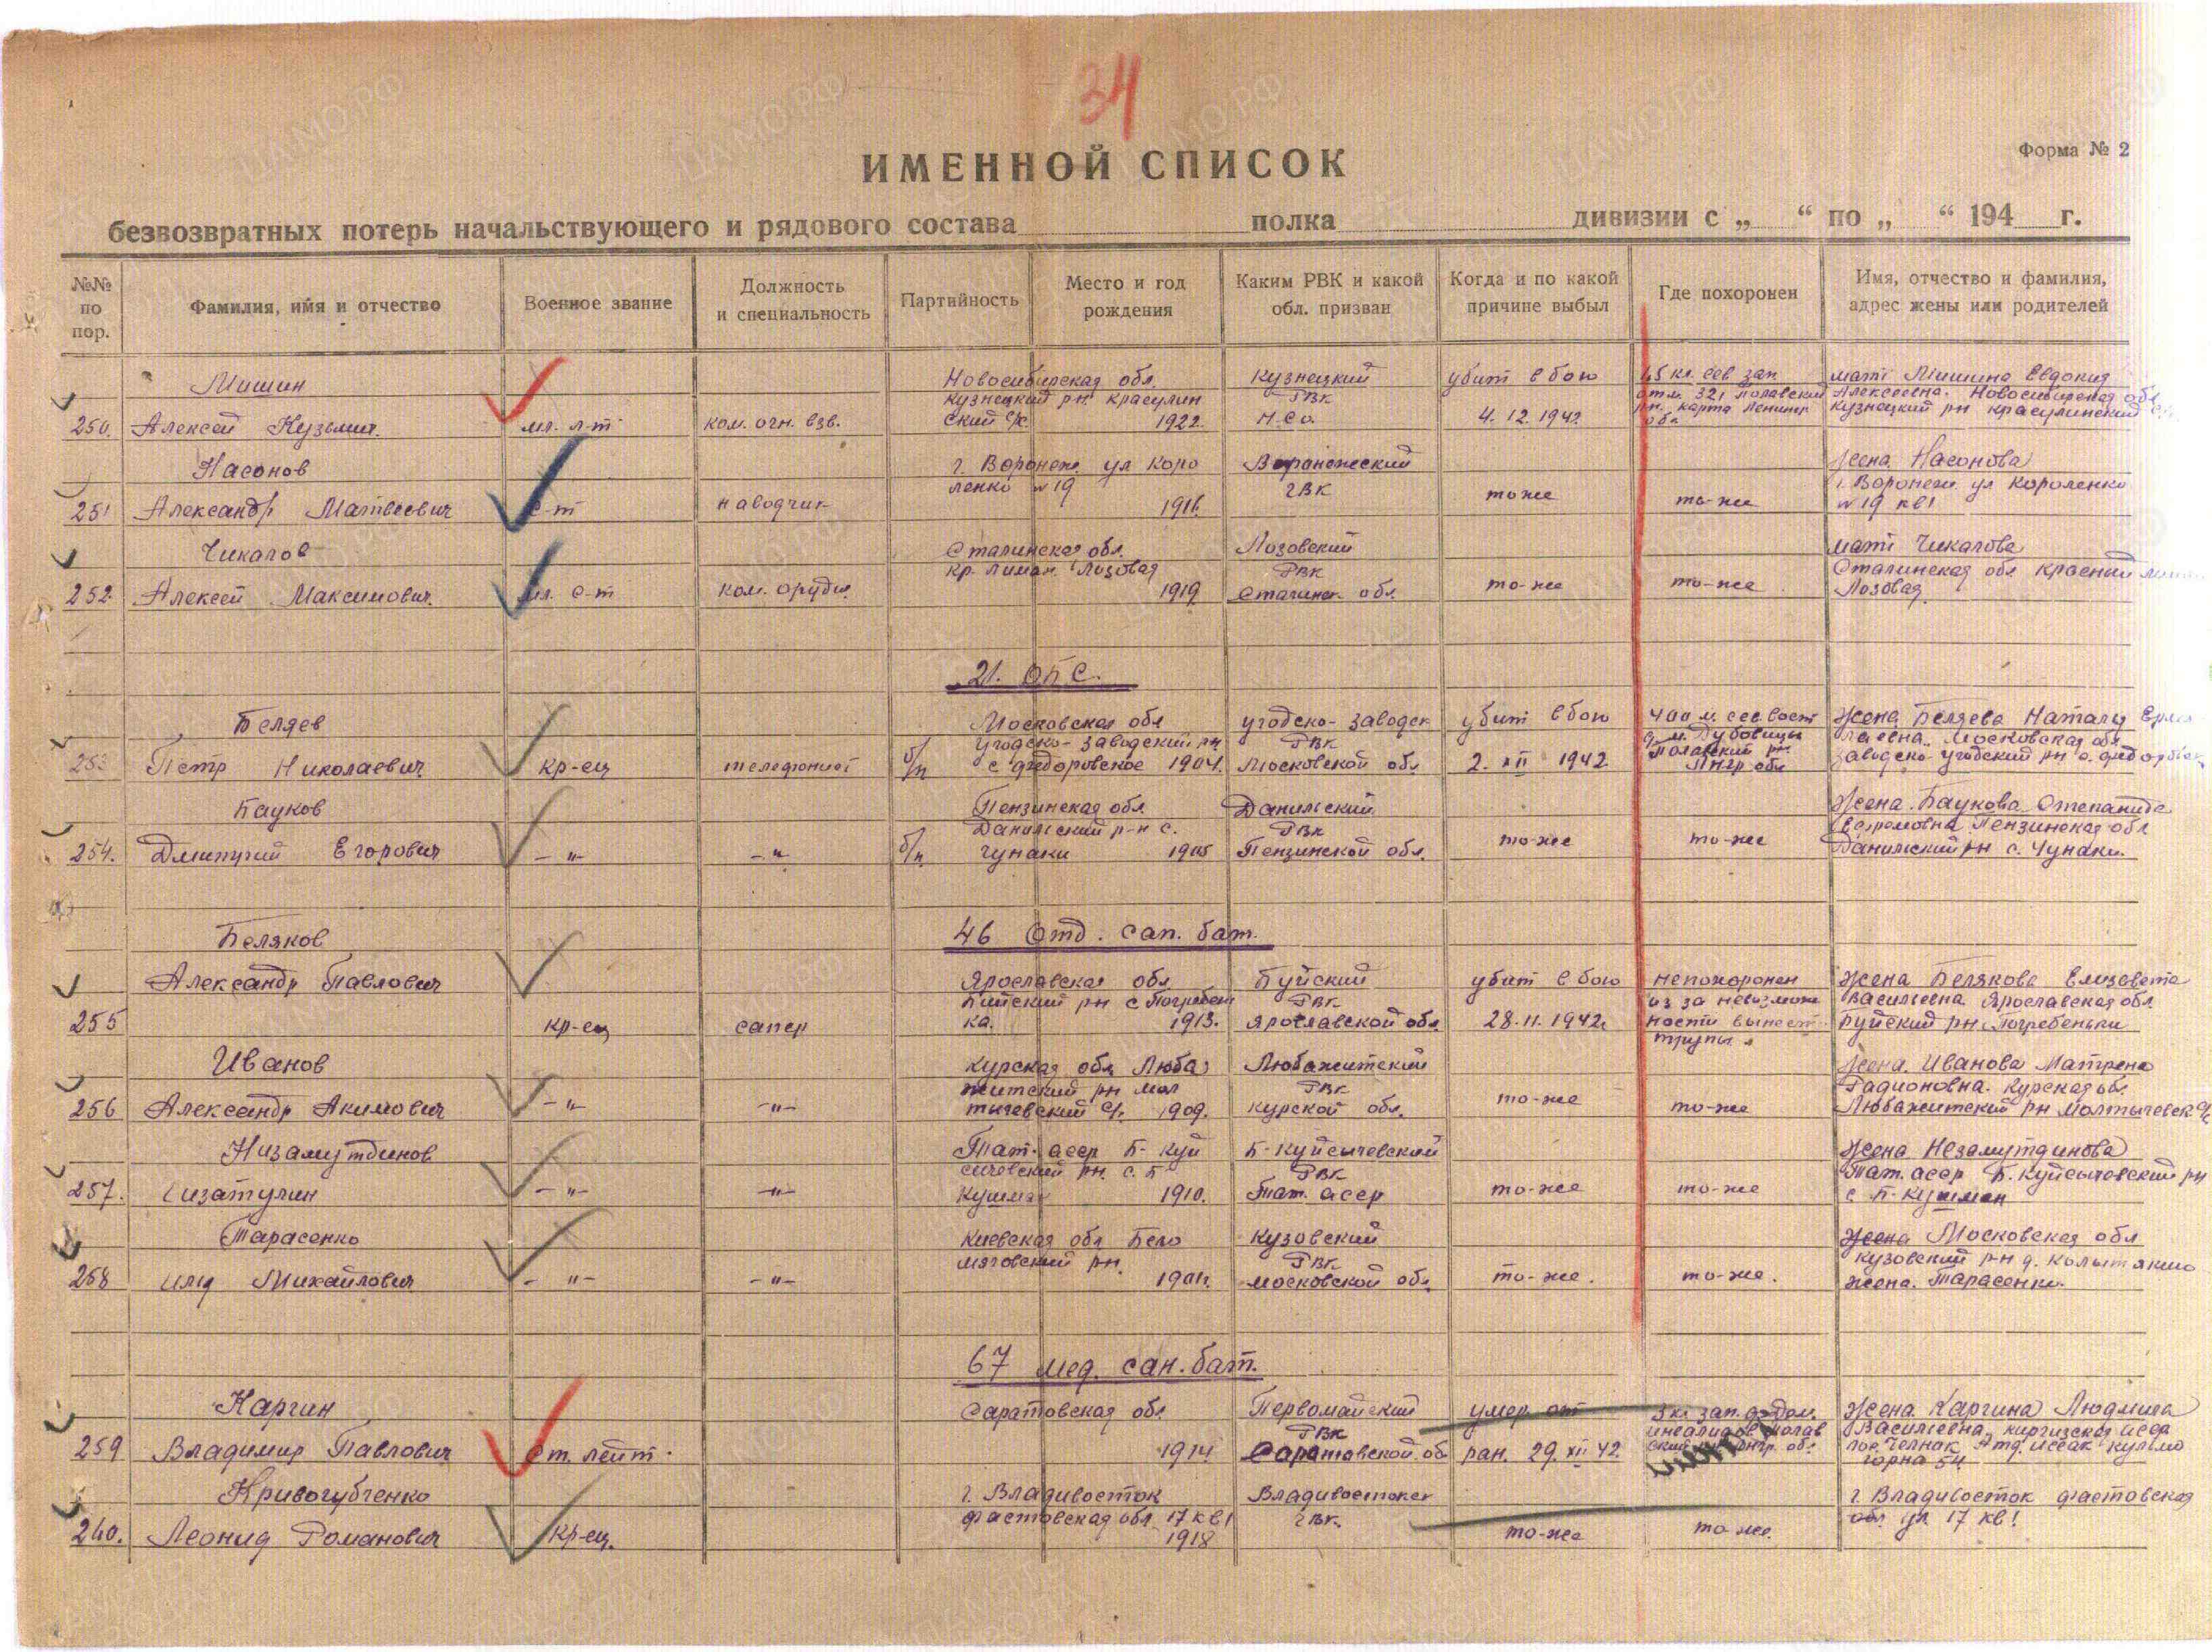 34
ИМЕННОЙ СПИСОК
Форма № 2
безвозвратных потерь начальствующего и рядового состава полка дивизии с „ “ по „ “ 194 г.
№№ по пор.
Фамилия, имя и отчество
Военное звание
Должность и специальность
Партийность
Место и год рождения
Каким РВК и какой обл. призван
Когда и по какой причине выбыл
Где похоронен
Имя, отчество и фамилия, адрес жены или родителей
Мишин Новосибирская обл. Кузнецкий убит в бою мать Мишина Евдокия
Кузнецкий рн. Красулин РВК Алексеевна. Новосибирская обл
250. Алексей Кузьмич. мл. л-т ком. огн. взв. ский с/с 1922. Н.Со. 4.12.1942 Кузнецкий рн Красулинский
Насонов г. Воронеж ул Коро Воронежский жена Насонова
ленко №19 ГВК г. Воронеж ул Короленко
251 Александр Матвеевич с-т наводчик 1916. тоже то-же №19 кв1
Чикалов Сталинская обл. Лозовский мать Чикалова
кр. Лиман. Лозовая РВК Сталинская обл Красный
252. Алексей Максимович. мл. с-т ком. орудия. 1919. Сталинск. обл. то-же то-же Лозовая
21. ОПС.
Беляев Московская обл Угодско-Заводск убит в бою 400 м. сев. вост жена Беляева
Угодско-Заводский рн РВК Московская обл
253 Петр Николаевич кр-ец телефонист б/п с Федоровское 1904. Московской обл 2. XII 1942 Заводско-Угодский рн
Бауков Пензинская обл Данильский жена. Баукова Степанида
Данильский р-н с. РВК Пензинская обл
254. Дмитрий Егорович -"- -"- б/п Чунаки 1905 Пензинской обл. то-же то-же Данильский рн с. Чунаки.
46 отд. сап. бат.
Беляков
Александр Павлович Ярославская обл Буйский убит в бою непохоронен жена Белякова Елизавета
РВК из за невозмож Васильевна Ярославская обл.
255 кр-ец сапер ка. 1913. Ярославской обл. 28.11.1942г ности вынест Буйский рн. Погребеньки
трупы.
Иванов Курская обл Люба Любажитский жена. Иванова Матрена
житский рн мол РВК Радионовна. Курская обл.
256 Александр Акимович -"- -"- тычевский с/с 1909. Курской обл. то-же то-же Любажитский рн Молтычевск с/с
Низамутдинов Тат. асср Б-Куй Б-Куйсычевский жена Незамутдинова
сичевский рн. с. Б РВК Тат. асср Б. Куйсычевский рн
257. -"- -"- Кушман 1910. Тат. асср то-же то-же с Б-Кушман
Тарасенко Киевская обл Бело Кузовский жена Московская обл
РВК Кузовский р-н д.
258 Илия Михайлович -"- -"- 1901г. Московской обл. то-же. то-же. жена. Тарасенко.
67 мед. сан. бат.
Каргин Саратовская обл Первомайский умер от 3 км зап. Дом. жена Каргина Людмила
РВК инвалидов Васильевна, Киргизская
259 Владимир Павлович ст. лейт. 1914 Саратовской об ран. 29. XII 42
Кривогубченко г. Владивосток Владивостокск г. Владивосток Фастовская
Фастовская обл 17 кв1 ГВК. обл ул 17 кв1
260. Леонид Романович кр-ец. 1918 то-же то-же.